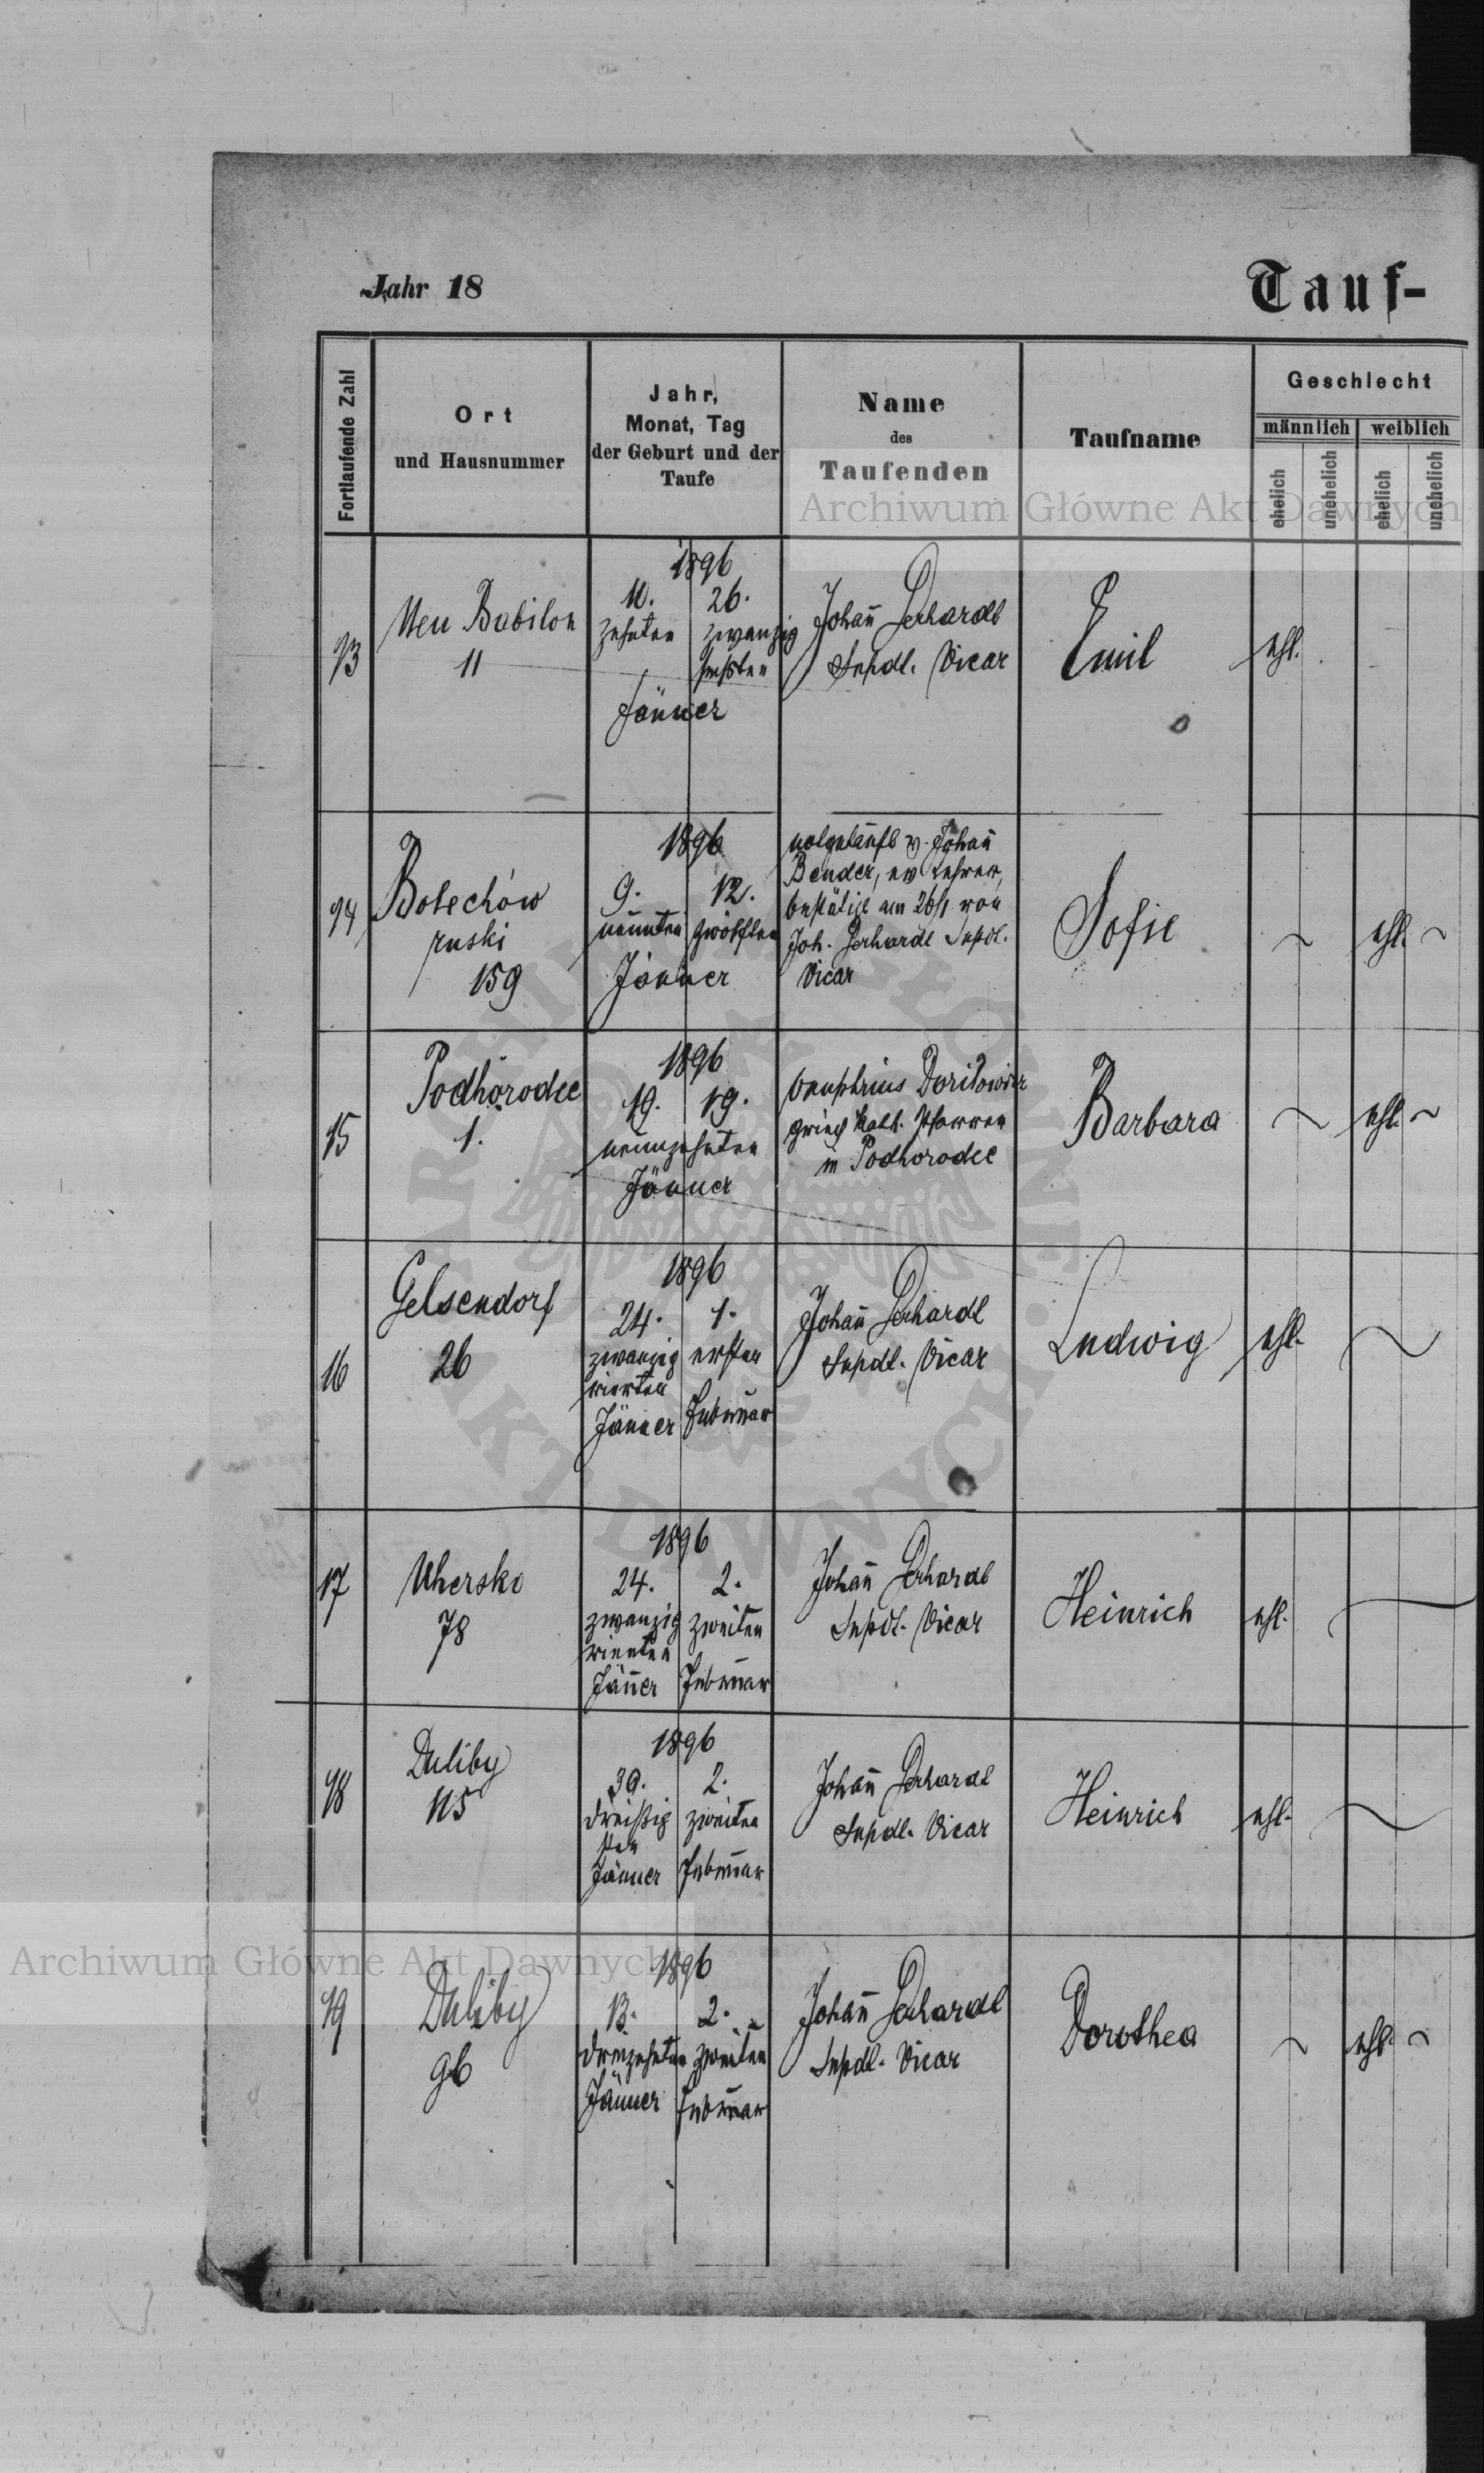 Jahr 18
Tauf-
Fortlaufende Zahl
Ort
und Hausnummer
Jahr,
Monat, Tag
der Geburt und der
Taufe
Name
des
Taufenden
Taufname
Geschlecht
männlich
weiblich
ehelich
unehelich
ehelich
unehelich
Archiwum Główne Akt Dawnych
13
Neu Babilon
11
1896
10. 26.
zehnten zwanzig
sechsten
Jänner
Johañ Gerhardt
Supdt. Vicar
Emil
ehl.
14
Bolechów
ruski
159
1896
9. 12.
neunten zwölften
Jänner
notgetauft v. Johañ
Bender, ev Lehrer,
bestätigt am 26/1 von
Joh. Gerhardt Supdt.
Vicar
Sofie
ehl.
15
Podhorodce
1.
1896
19. 19.
neunzehnten
Jänner
griech kath. Pfarrer
in Podhorodce
Barbara
ehl.
16
Gelsendorf
26
1896
24. 1.
zwanzig ersten
vierten
Jänner Februar
Johañ Gerhardt
Supdt. Vicar
Ludwig
ehl.
17
Uhersko
78
1896
24. 2.
zwanzig zweiten
vierten
Jäñer Februar
Johañ Gerhardt
Supdt. Vicar
Heinrich
ehl.
18
Duliby
115
1896
30. 2.
dreißig zweiten
sten
Jänner Februar
Johañ Gerhardt
Supdt. Vicar
Heinrich
ehl.
19
Duliby
96
1896
13. 2.
dreizehnten zweiten
Jänner Februar
Johañ Gerhardt
Supdt. Vicar
Dorothea
ehl.
Archiwum Główne Akt Dawnych
ARCHIWUM GŁÓWNE AKT DAWNYCH